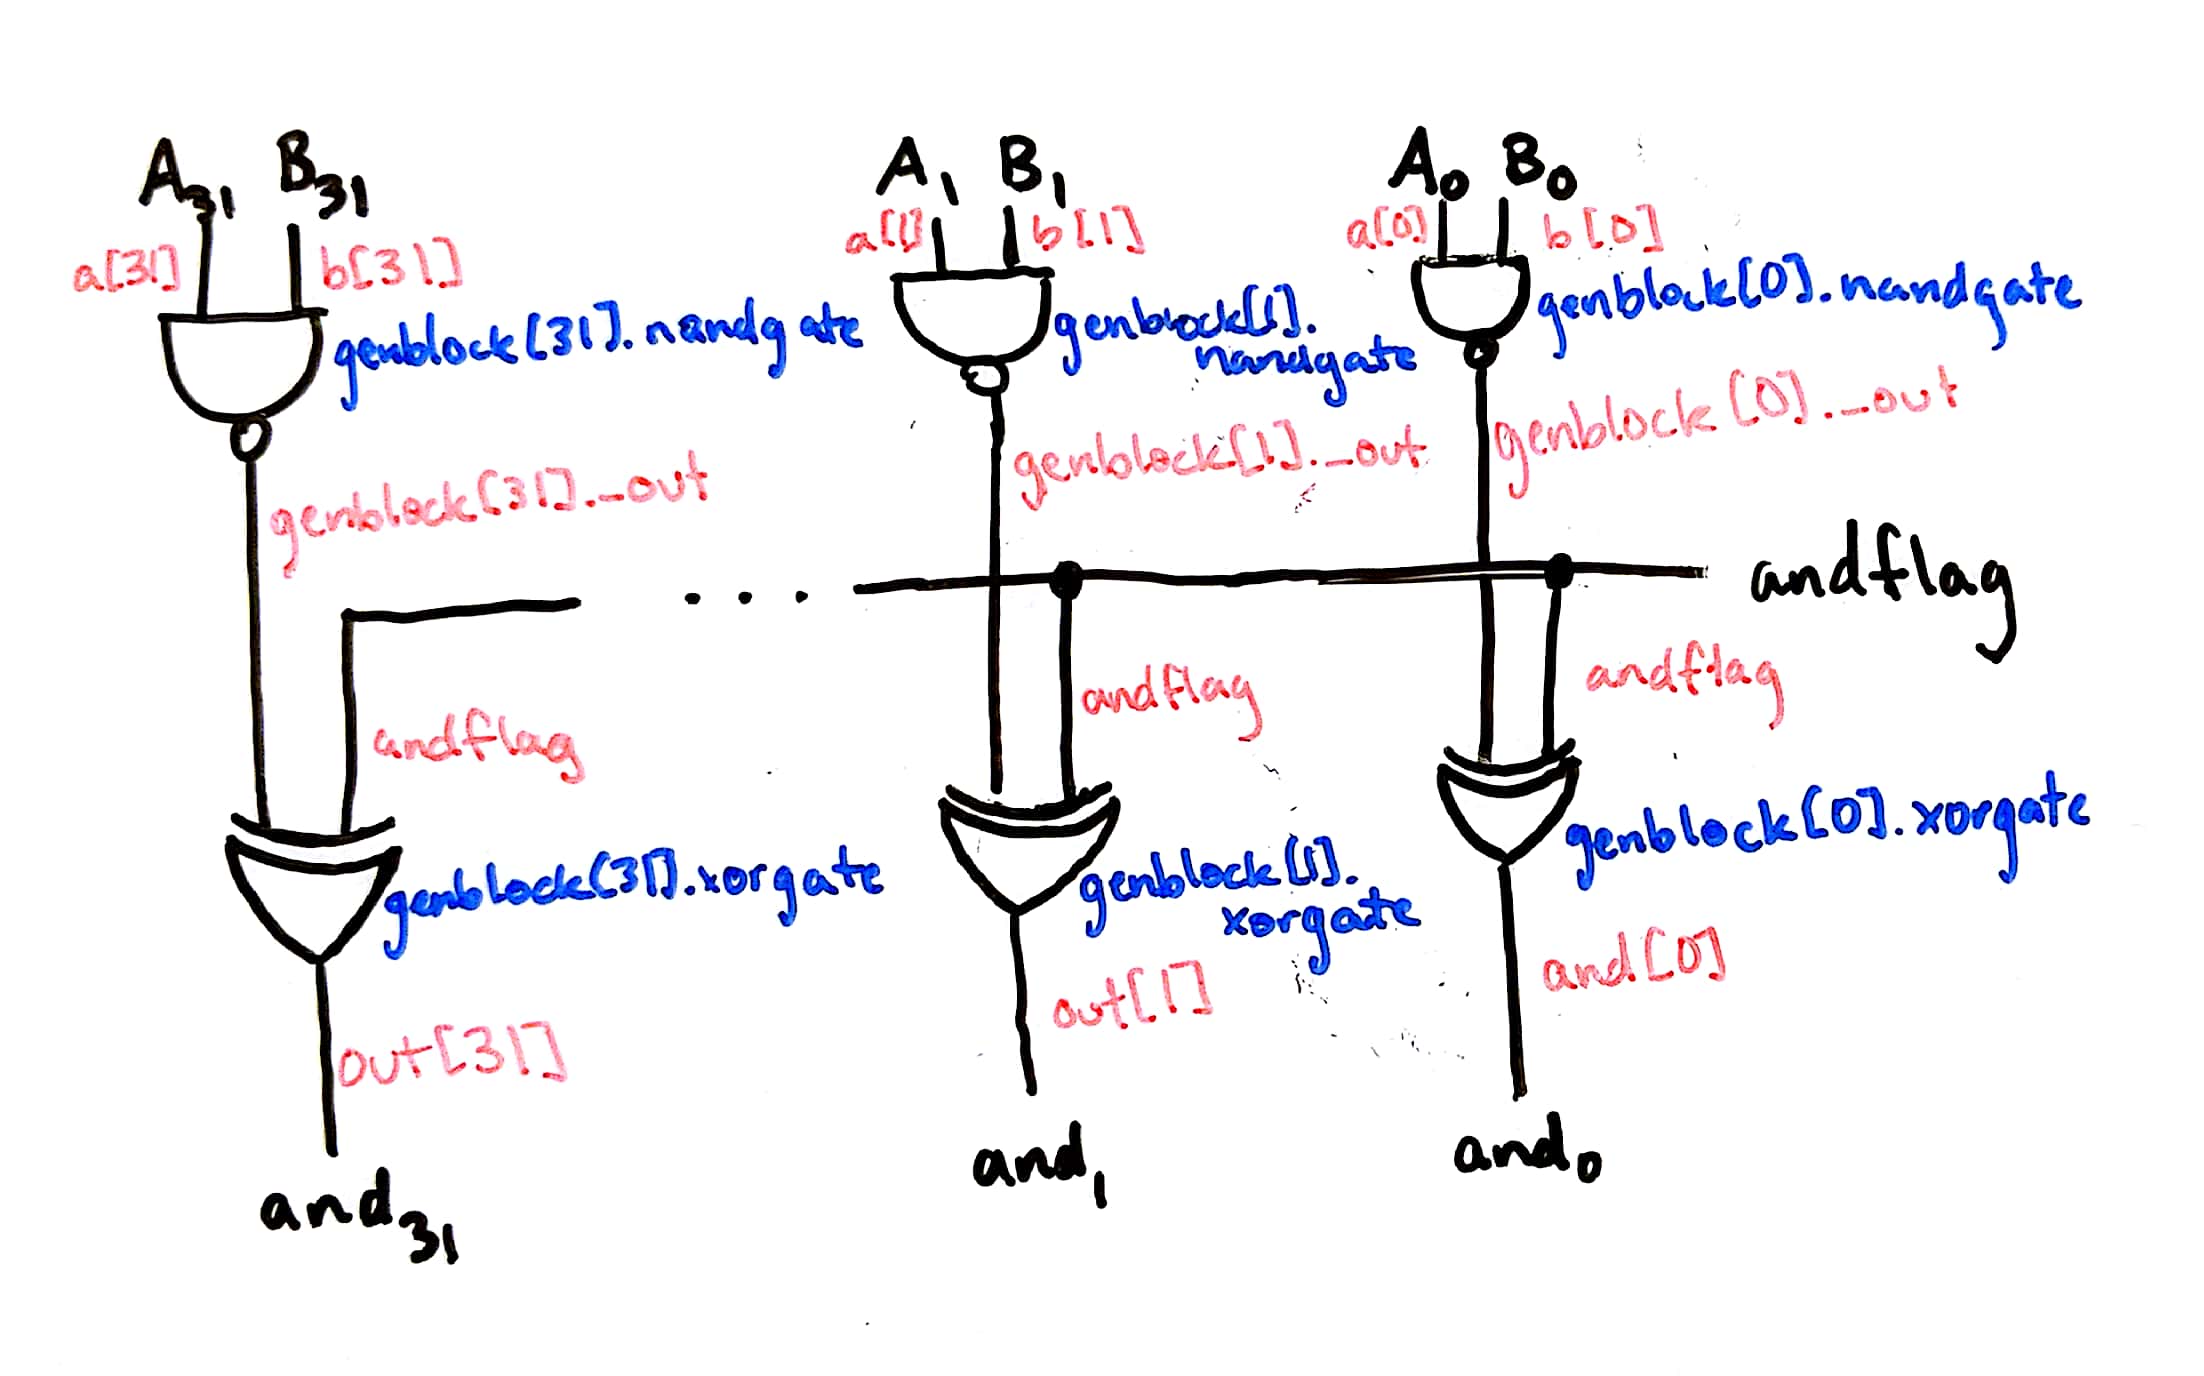 A₃₁ B₃₁
a[31] b[31]
genblock[31].nandgate
genblock[31]._out
andflag
genblock[31].xorgate
out[31]
and₃₁
...
A₁ B₁
a[1] b[1]
genblock[1].
nandgate
genblock[1]._out
andflag
genblock[1].
xorgate
out[1]
and₁
A₀ B₀
a[0] b[0]
genblock[0].nandgate
genblock[0]._out
andflag
andflag
genblock[0].xorgate
and[0]
and₀